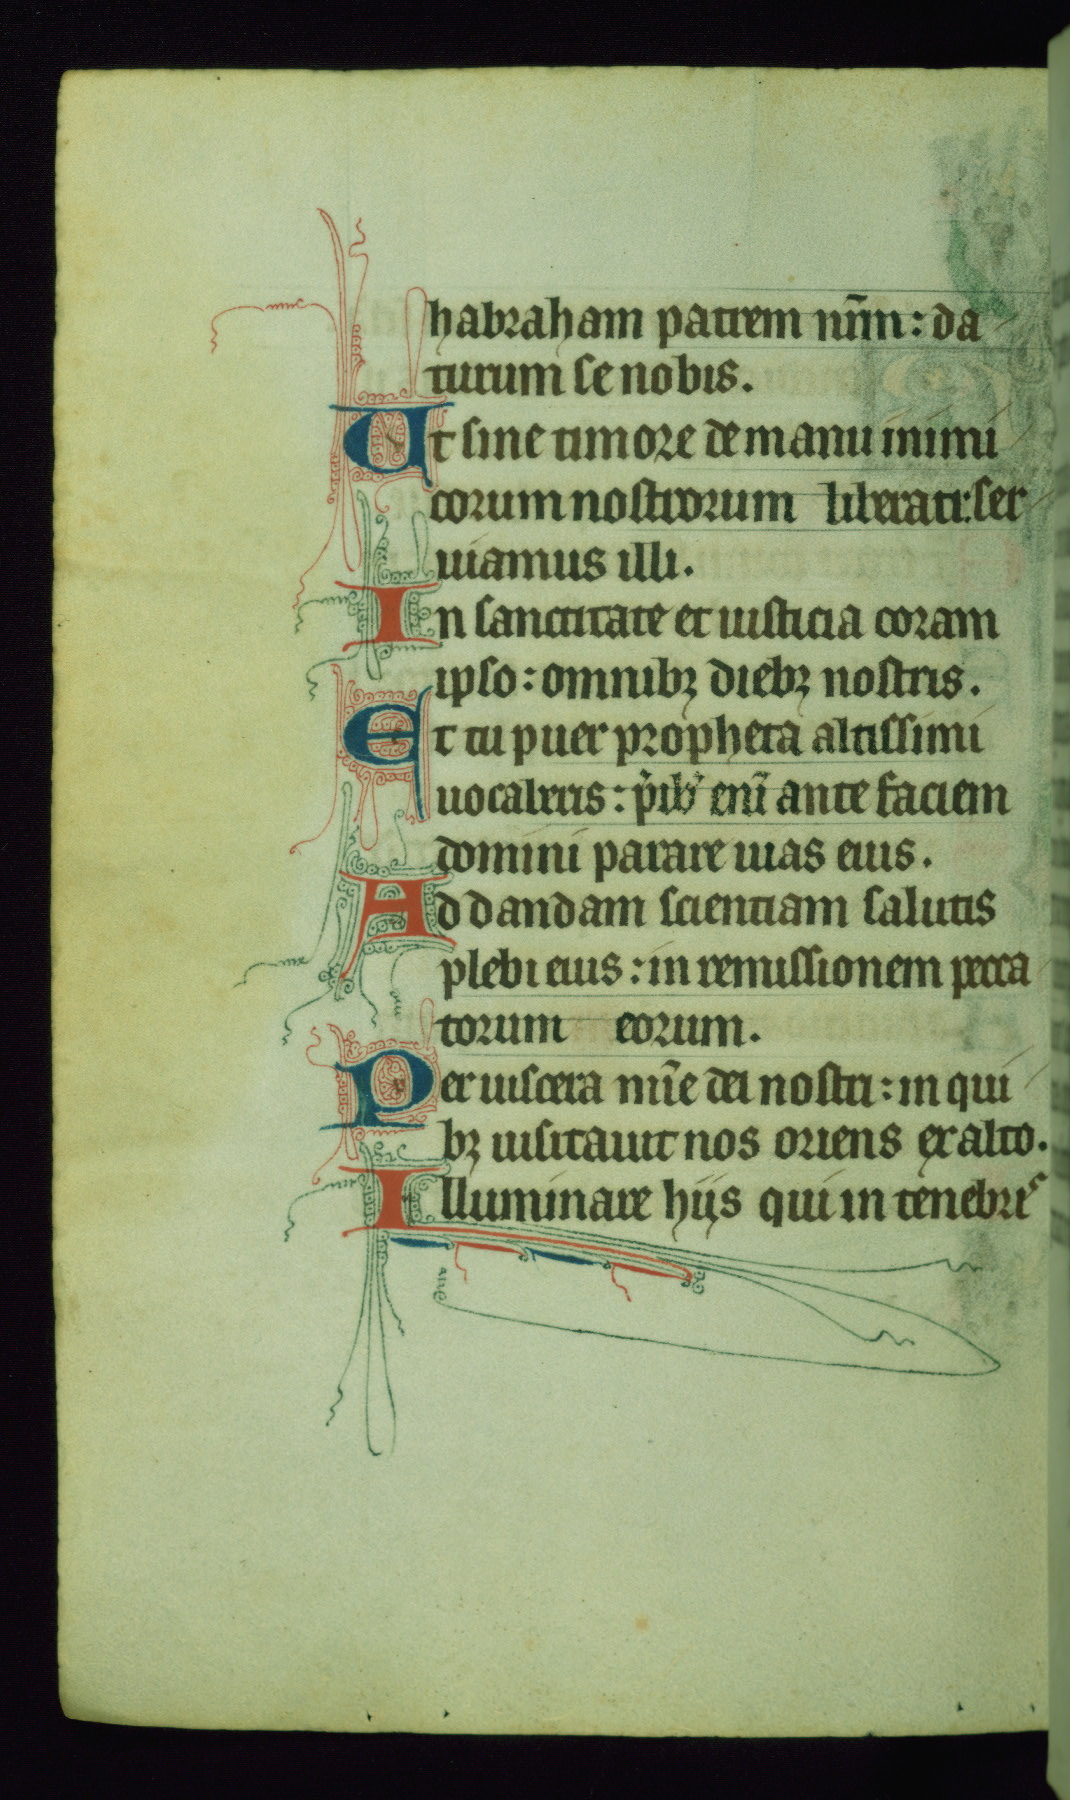 habraham patrem nr̄m : da
turum se nobis.
Ut sine timore de manu inimi
corum nostrorum liberati : ser
uiamus illi.
In sanctitate et iusticia coram
ipso : omnibꝫ diebꝫ nostris.
Et tu puer propheta altissimi
uocaberis : p̄ibꝰ eni̅ ante faciem
domini parare uias eius.
Ad dandam scientiam salutis
plebi eius : in remissionem pecca
torum eorum.
Per uiscera mi̅e dei nostri : in qui
bꝫ uisitauit nos oriens ex alto.
Illuminare hijs qui in tenebris